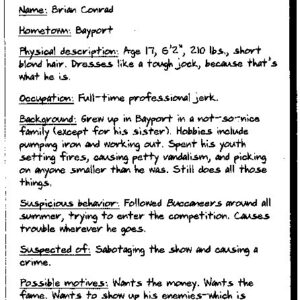 Name: Brian Conrad
Hometown: Bayport
Physical description: Age 17, 6'2", 210 lbs., short
blond hair. Dresses like a tough jock, because that's
what he is.
Occupation: Full-time professional jerk.
Background: Grew up in Bayport in a not-so-nice
family (except for his sister). Hobbies include
pumping iron and working out. Spent his youth
setting fires, causing petty vandalism, and picking
on anyone smaller than he was. Still does all those
things.
Suspicious behavior: Followed Buccaneers around all
summer, trying to enter the competition. Causes
trouble wherever he goes.
Suspected of: Sabotaging the show and causing a
crime.
Possible motives: Wants the money. Wants the
fame. Wants to show up his enemies—which is